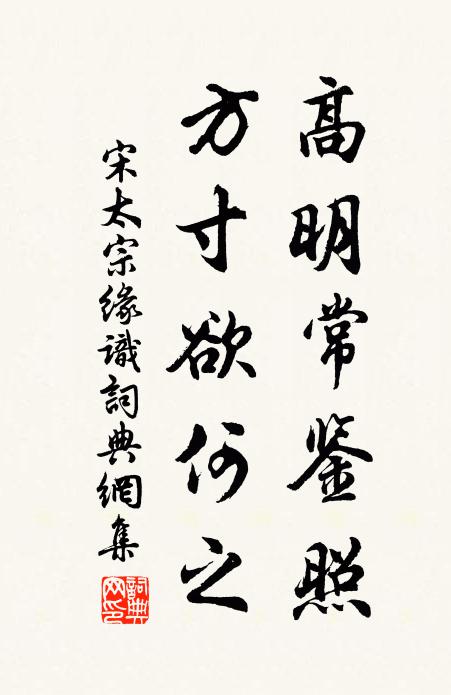 高明常鉴照
方寸欲何之
宋太宗缘識詞典網集
詞典网印